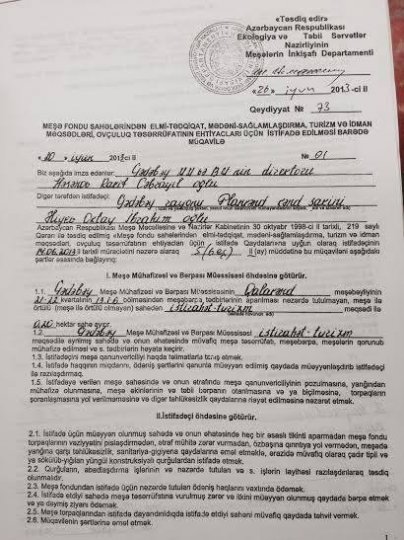 «Təsdiq edir»
Azərbaycan Respublikası
Ekologiya və Təbii Sərvətlər
Nazirliyinin
Meşələrin İnkişafı Departamenti
«26» iyun 2013-cü il
Qeydiyyat № 73
MEŞƏ FONDU SAHƏLƏRİNDƏN ELMİ-TƏDQİQAT, MƏDƏNİ-SAĞLAMLAŞDIRMA, TURİZM VƏ İDMAN
MƏQSƏDLƏRİ, OVÇULUQ TƏSƏRRÜFATININ EHTİYACLARI ÜÇÜN İSTİFADƏ EDİLMƏSİ BARƏDƏ
MÜQAVİLƏ
«20» iyun 2013-cü il № 01
Biz aşağıda imza edənlər: Gədəbəy direktoru
oğlu
Digər tərəfdən istifadəçi: Gədəbəy rayonu kənd sakini
Oktay İbrahim oğlu
Azərbaycan Respublikası Meşə Məcəlləsinə və Nazirlər Kabinetinin 30 oktyabr 1998-ci il tarixli, 219 saylı
Qərarı ilə təsdiq edilmiş «Meşə fondu sahələrindən elmi-tədqiqat, mədəni-sağlamlaşdırma, turizm və idman
məqsədləri, ovçuluq təsərrüfatının ehtiyacları üçün istifadə Qaydaları»na uyğun olaraq istifadəçinin
14.06.2013 il tarixli müraciətini nəzərə alaraq 5 (beş) il (ay) müddətinə bu müqaviləni aşağıdakı
şərtlər əsasında bağlayırıq:
I. Meşə Mühafizəsi və Bərpası Müəssisəsi öhdəsinə götürür.
1.1. Gədəbəy Meşə Mühafizəsi və Bərpası Müəssisəsinin meşəbəyliyinin
kvartalının bölməsindən meşəbərpa tədbirlərinin aparılması nəzərdə tutulmayan, meşə ilə
örtülü (meşə ilə örtülü olmayan) sahələrdən istirahət-turizm məqsədi ilə
0,20 hektar sahə ayırır.
1.2. Gədəbəy Meşə Mühafizəsi və Bərpası Müəssisəsi istirahət-turizm
məqsədilə ayrılmış sahədə və onun əhatəsində müvafiq meşə təsərrüfatı, meşəbərpa, meşələrin qorunub
mühafizə edilməsi və s. tədbirlərin həyata keçirir.
1.3. İstifadəçini meşə qanunvericiliyi haqda təlimatlarla təmin etmək.
1.4. İstifadə haqqının miqdarını, ödəniş şərtlərini qanunla müəyyən edilmiş qaydada müəyyənləşdirib istifadəçi
ilə razılaşdırmaq.
1.5. İstifadəyə verilən meşə sahəsində və onun ətrafında meşə qanunvericiliyinin pozulmasına, yanğından
mühafizə olunmasına, meşə əkinlərinin və təbii bərpanın otarılmasına və ya biçilməsinə, torpaqların
şoranlaşmasına yol verilməməsinə və digər təhlükəsizlik qaydalarına riayət edilməsinə nəzarət etmək.
II.İstifadəçi öhdəsinə götürür.
2.1. İstifadə üçün müəyyən olunmuş sahədə və onun əhatəsində heç bir əsaslı tikinti aparmadan meşə fondu
torpaqlarının vəziyyətini pisləşdirmədən, ətraf mühitə zərər vurmadan, özbaşına qırıntıya yol vermədən, meşədə
yanğına qarşı təhlükəsizlik, sanitariya-gigiyena qaydalarına əməl etməklə, ərazidə müvafiq olaraq çadır tipli və
ya sökülüb-yığılan yüngül konstruksiyalı qurğulardan istifadə etmək.
2.2. Qurğuların, abadlaşdırma işlərinin və nəzərdə tutulan və s. işlərin layihəsi razılaşdırılaraq təsdiq
olunmalıdır.
2.3. Meşə fondundan istifadə üçün nəzərdə tutulan ödəniş haqlarını vaxtında ödəmək.
2.4. İstifadə etdiyi sahədə meşə təsərrüfatına vurulmuş zərər və itkini müəyyən olunmuş qaydada bərpa etmək
və ya dəymiş ziyanı ödəmək.
2.5. Meşə torpaqlarından istifadə dayandırıldıqda istifadə etdiyi sahəni müvafiq qaydada təhvil vermək.
2.6. Müqavilənin şərtlərinə əməl etmək.
1